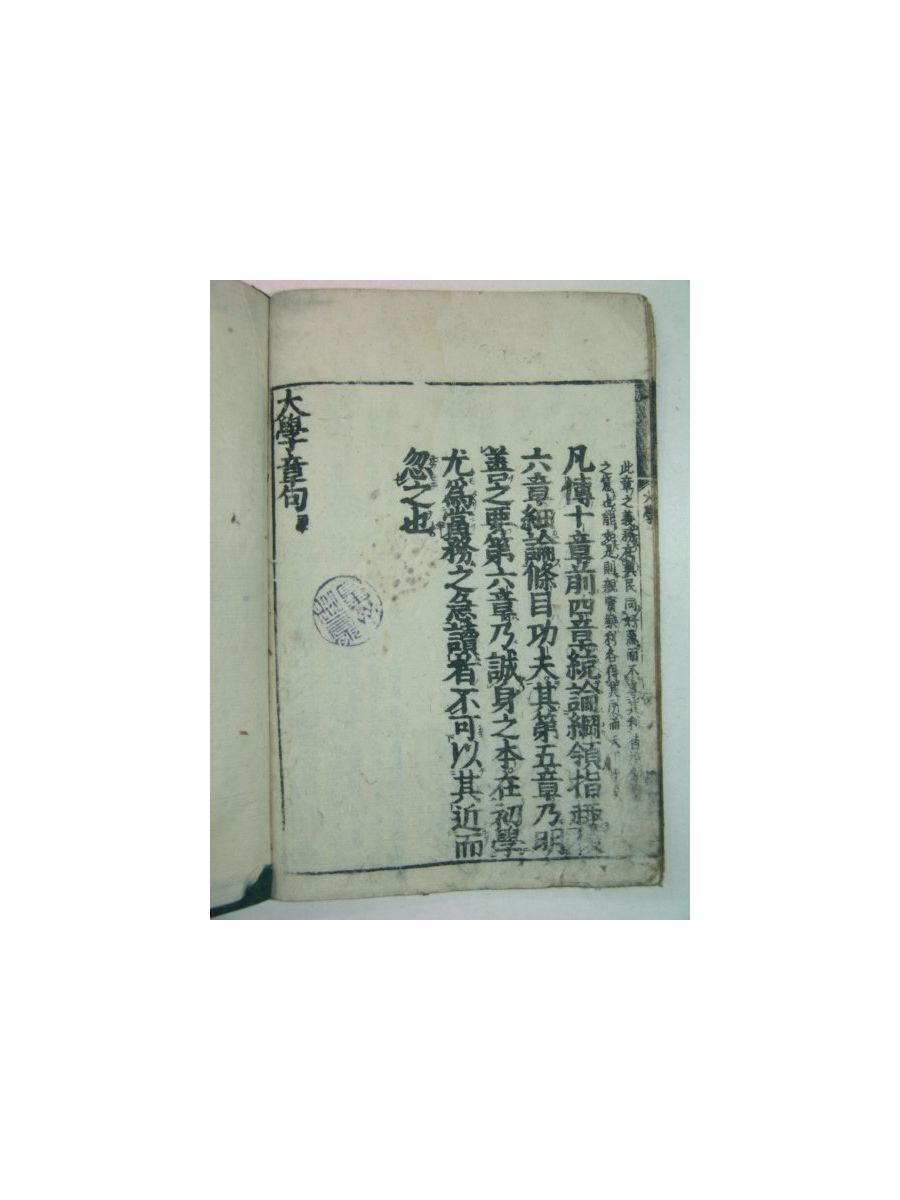 此章之義務在與民同好惡而不專其利皆
之意也能如是則親賢樂利各得其所而天下
凡傳十章前四章統論綱領指趣後
六章細論條目功夫其第五章乃明
善之要第六章乃誠身之本在初學
尤爲當務之急讀者不可以其近而
忽之也
大學章句
大學